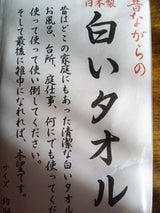 日本製
昔ながらの
白いタオル
昔はどこの家庭にもあった清潔な白いタオル
お風呂、台所、庭仕事、何にでも使ってくだ
使って使って使い倒してください。
そして最後に雑巾になれれば、本望です。
サイズ 約34